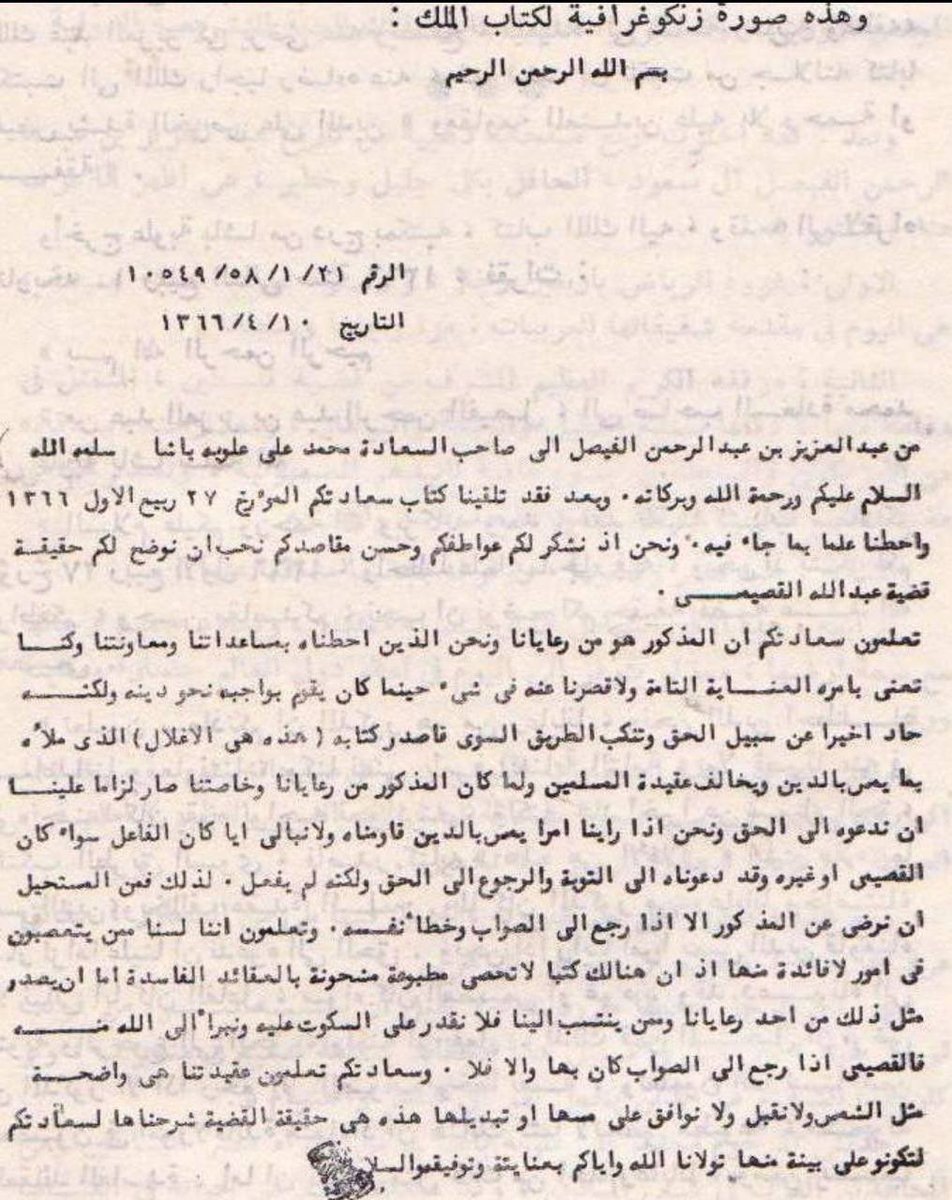 وهذه صورة زنكوغرافية لكتاب الملك :
بسم الله الرحمن الرحيم
الرقم ١٠٥٤٩/٥٨/١/٢١
التاريخ ١٣٦٦/٤/١٠
من عبدالعزيز بن عبدالرحمن الفيصل الى صاحب السعادة محمد على علوبه باشا سلمه الله
السلام عليكم ورحمة الله وبركاته. وبعد فقد تلقينا كتاب سعادتكم المؤرخ ٢٧ ربيع الاول ١٣٦٦
واحطنا علما بما جاء فيه. ونحن اذ نشكر لكم عواطفكم وحسن مقاصدكم نحب ان نوضح لكم حقيقة
قضية عبدالله القصيمى .
تعلمون سعادتكم ان المذكور هو من رعايانا ونحن الذين احطناه بمساعداتنا ومعاونتنا وكنا
نعنى بامره العناية التامة ولاقصرنا عنه فى شىء حينما كان يقوم بواجبه نحو دينه ولكنه
حاد اخيرا عن سبيل الحق وتنكب الطريق السوى فاصدر كتابه (هذه هى الاغلال) الذى ملأه
بما يمس بالدين ويخالف عقيدة المسلمين ولما كان المذكور من رعايانا وخاصتنا صار لزاما علينا
ان ندعوه الى الحق ونحن اذا راينا امرا يمس بالدين قاومناه ولانبالى ايا كان الفاعل سواء كان
القصيمى او غيره وقد دعوناه الى التوبة والرجوع الى الحق ولكنه لم يفعل . لذلك فمن المستحيل
ان نرضى عن المذكور الا اذا رجع الى الصواب وخطأ نفسه . وتعلمون اننا لسنا ممن يتعصبون
فى امور لافائدة منها اذ ان هنالك كتبا لاتحصى مطبوعة مشحونة بالعقائد الفاسدة اما ان يصدر
مثل ذلك من احد رعايانا وممن ينتسب الينا فلا نقدر على السكوت عليه ونبرأ الى الله منه
فالقصيمى اذا رجع الى الصواب كان بها والا فلا . وسعادتكم تعلمون عقيدتنا هى واضحة
مثل الشمس ولانقبل ولا نوافق على مسها او تبديلها هذه هى حقيقة القضية شرحناها لسعادتكم
لتكونو على بينة منها تولانا الله واياكم بعنايتة وتوفيقه والسلا